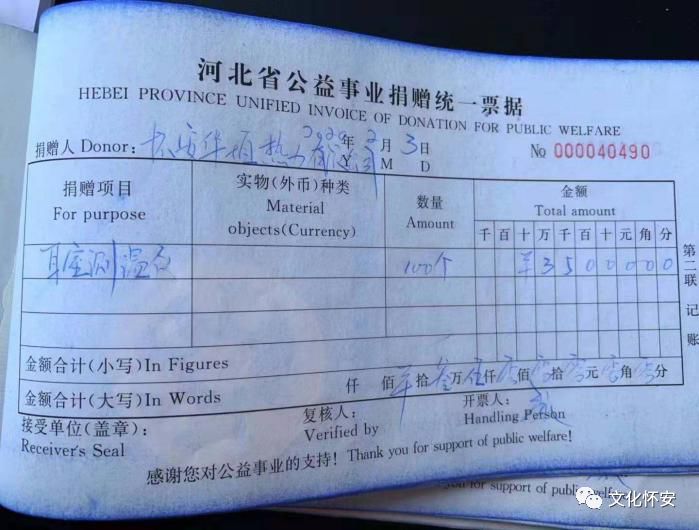 河北省公益事业捐赠统一票据
HEBEI PROVINCE UNIFIED INVOICE OF DONATION FOR PUBLIC WELFARE
捐赠人 Donor: 怀安华垣热力有限公司 2020年2月3日 № 000040490
Y M D
捐赠项目 For purpose
实物(外币)种类 Material objects(Currency)
数量 Amount
金额 Total amount
千 百 十 万 千 百 十 元 角 分
测温 100个 ¥3500000
第二联 记账
金额合计(小写)In Figures
金额合计(大写)In Words 仟 佰 拾 叁万伍仟零佰零拾零元零角零分
接受单位(盖章): Receiver's Seal
复核人: Verified by
开票人: Handling Person
感谢您对公益事业的支持! Thank you for support of public welfare!
you for support of public welfare
文化怀安